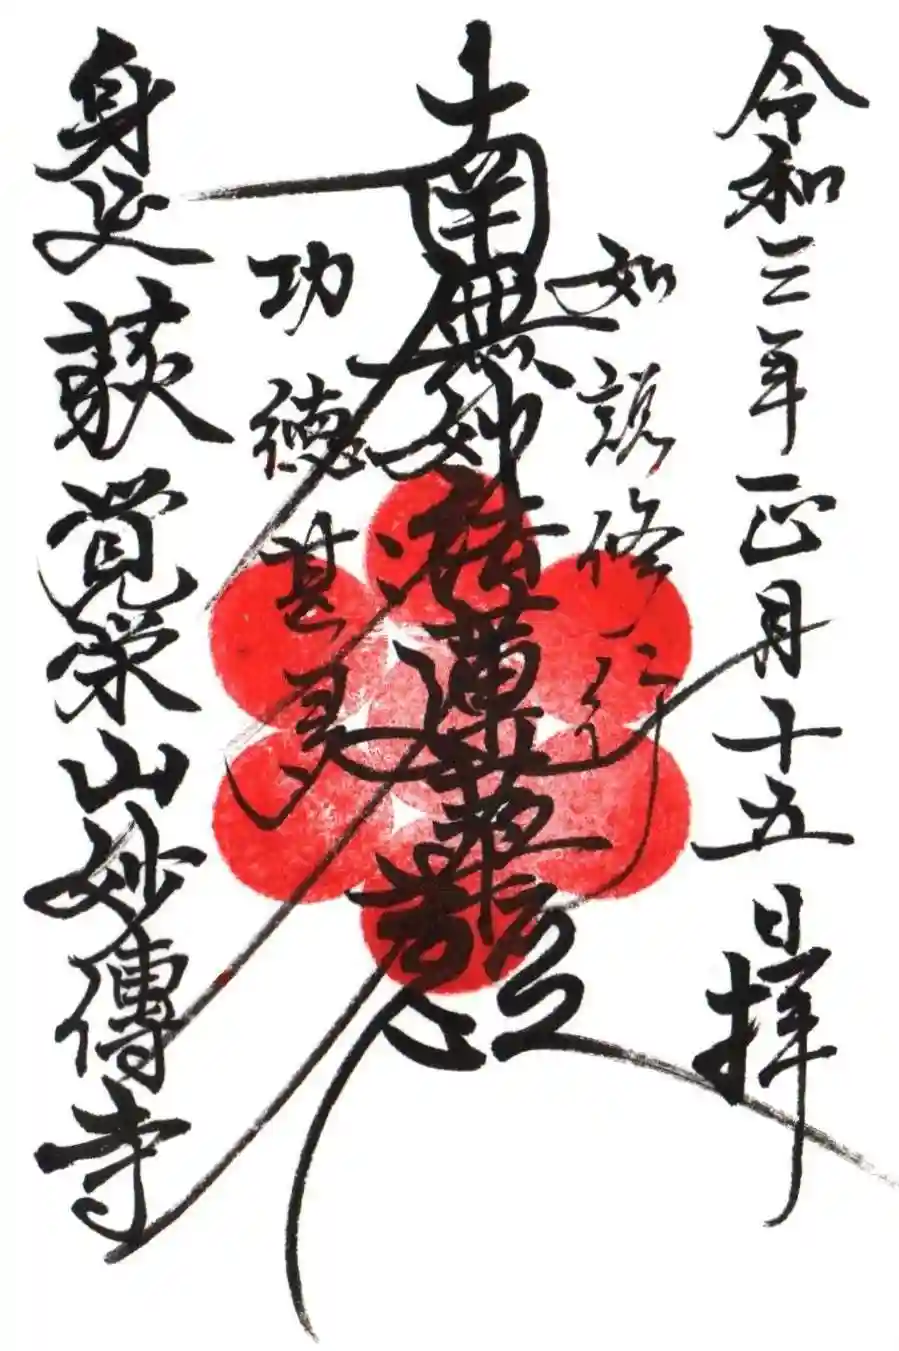 令和三年正月十五日拝
如説修行
南無妙法蓮華経
功徳甚多
身延荻覚栄山妙傳寺